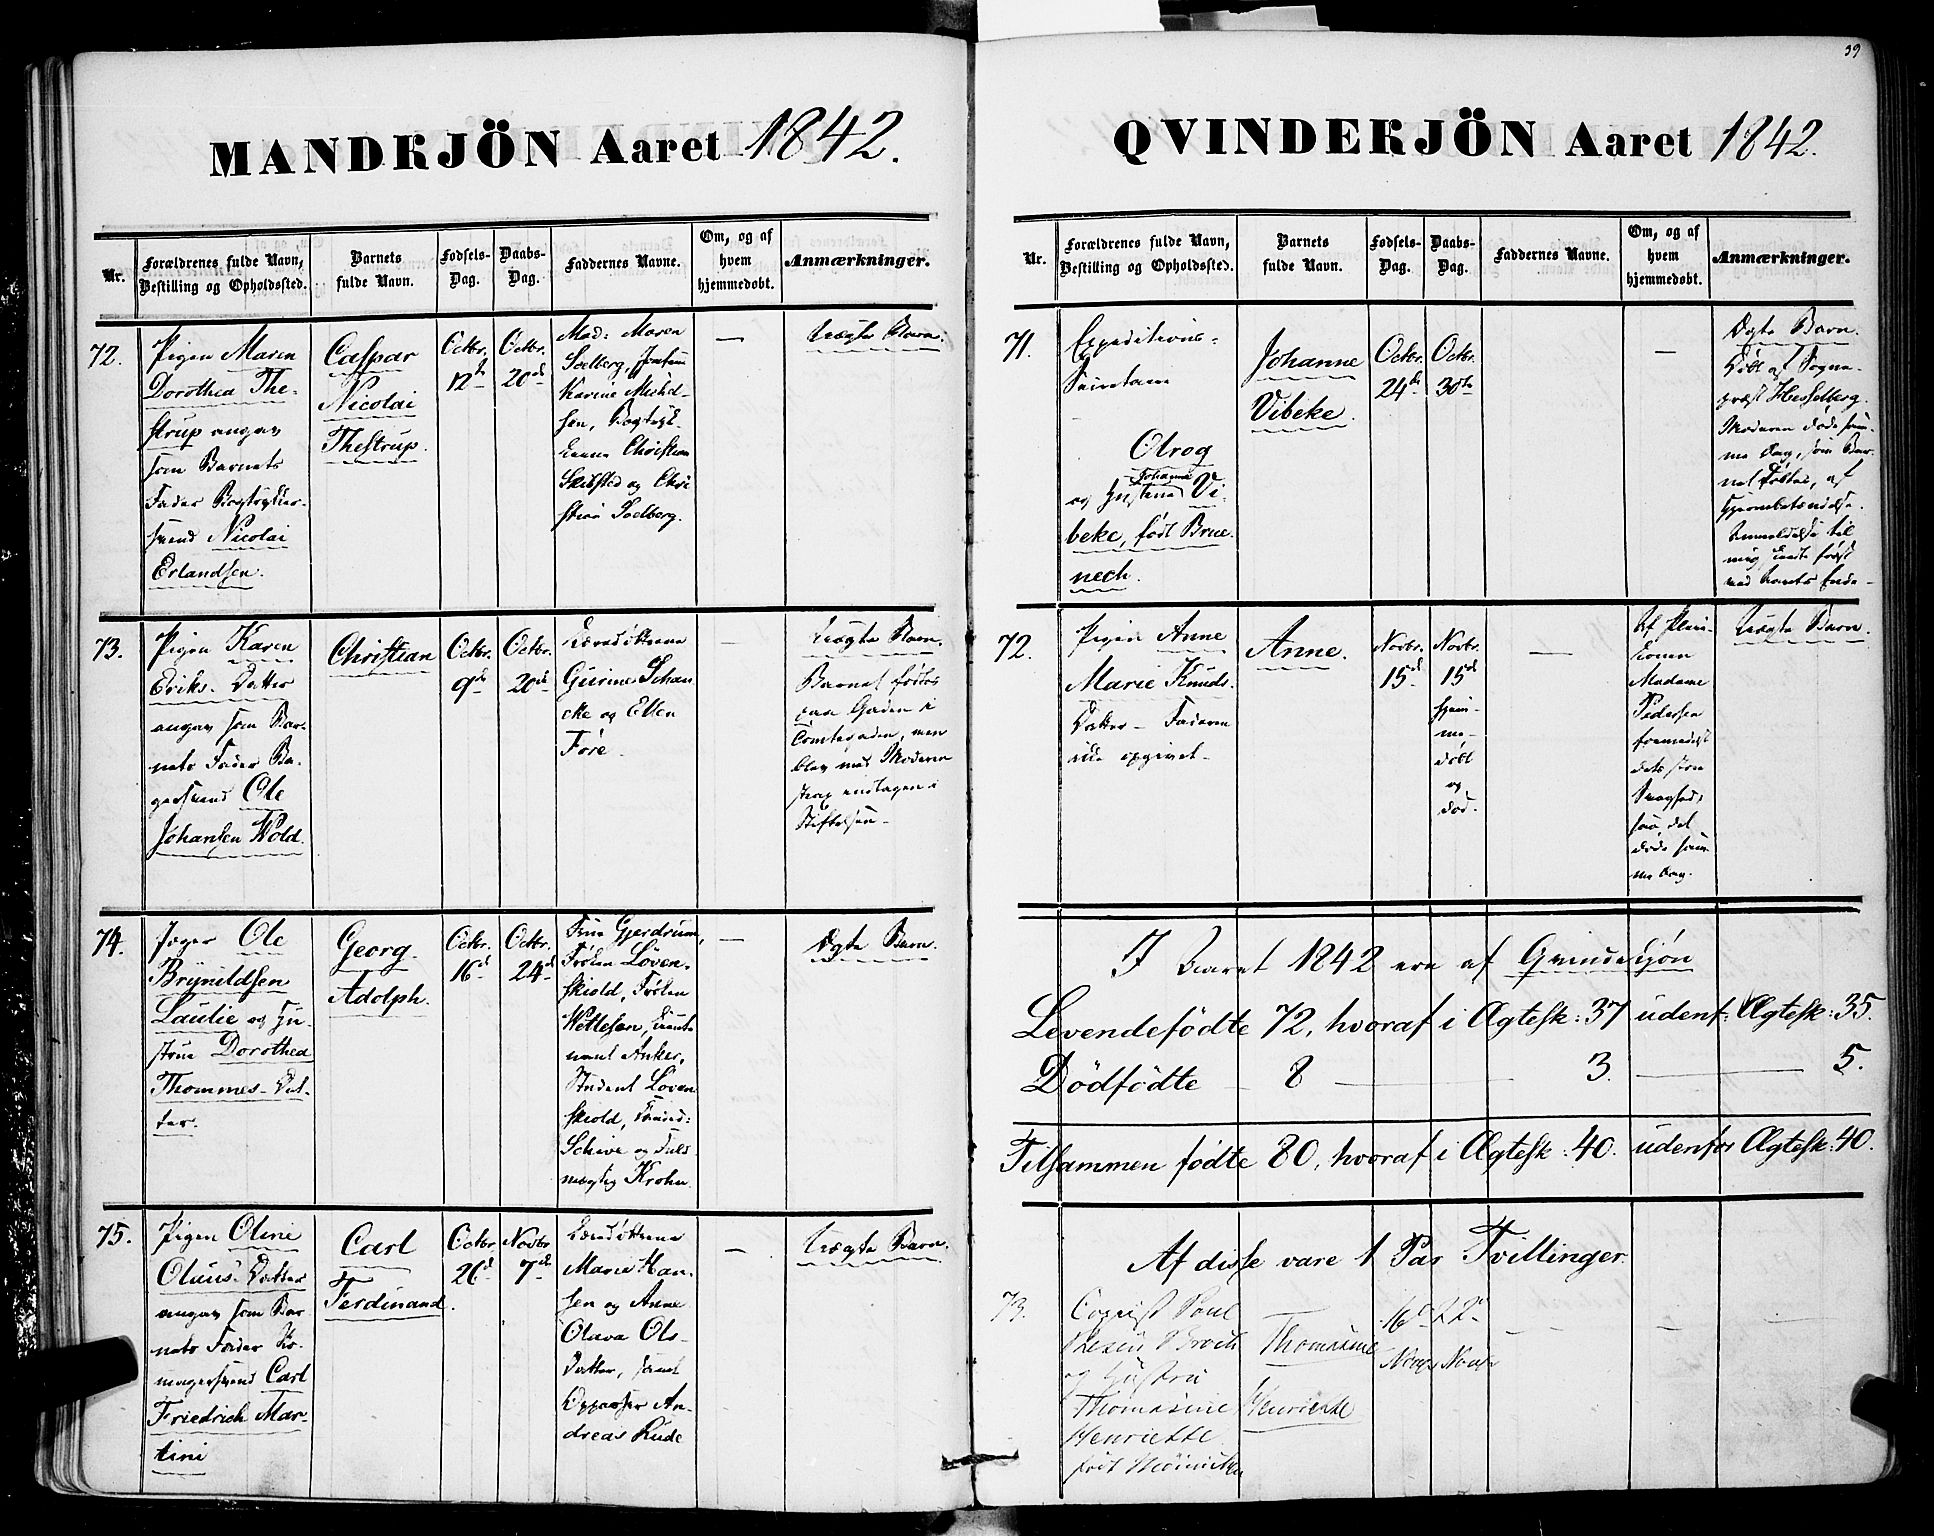 MANDKJÖN Aaret 1842.
Nr.
Forældrenes fulde Navn,
Bestilling og Opholdssted.
Barnets
fulde Navn.
Fødsels-
Dag.
Daabs-
Dag.
Faddernes Navne.
Om, og af
hvem
hjemmedøbt.
Anmærkninger.
72.
Pigen Maren
Dorothea The-
strup angav
som Barnets
Fader Bogtrykker-
svend Nicolai
Erlandsen.
Caspar
Nicolai
Thestrup.
Octbr.
12te
Octbr.
20de
Mad: Maren
Soelberg, Jomfru
Karine Michel-
sen, Bogtryk-
Christian
Skibsted og Chri
stian Soelberg.
—
Uægte Barn.
73.
Pigen Karen
Eriks-Datter
angav som Bar-
nets Fader Ba-
gersvend Ole
Johansen Wold.
Christian
Octbr.
9de
Octbr.
20de
Læredøttrene
Gurine Schan
cke og Ellen
Fore.
—
Uægte Barn.
Barnet fødtes
paa Gaden i
Comtegaden, men
blev med Moderen
strax indtagen i
Stiftelsen.
74.
Jæger Ole
Brynildsen
Laulie og Hu-
strue Dorothea
Thommes-Dat-
ter.
Georg
Adolph.
Octbr.
16d
Octbr.
24d
Frue Gjerdrum,
Frøken Løven-
skiold, Frøken
Wettesen, Lieute
nant Anker,
Student Løven
skiold,
Schive og Fuld
mægtig Krohn.
—
Ægte Barn.
75.
Pigen Oline
Oluns-Datter
angav som Bar
nets Fader Sko-
magersvend Carl
Friedrich Mar-
tini
Carl
Ferdinand.
Octbr.
26d
Novbr.
7de
Læredøttrene
Marie Han-
sen og Anne
Olava Ols-
Datter, samt
Oppasser An-
dreas Rude
—
Uægte Barn.
39
QVINDEKJÖN Aaret 1842.
Nr.
Forældrenes fulde Navn,
Bestilling og Opholdssted.
Barnets
fulde Navn.
Fødsels-
Dag.
Daabs-
Dag.
Faddernes Navne.
Om, og af
hvem
hjemmedøbt.
Anmærkninger.
71.
Expeditions-
Secretaire
Olrog
Johanne
og Hustrue Vi-
beke, født Brue-
nech.
Johanne
Vibeke.
Octbr.
24de
Octbr.
30te
—
Ægte Barn.
Døbt af Sogne-
præst Hesselberg.
Moderen døde sam-
me Dag, som Bar-
net fødtes, af
Anmeldelse til
mig skeede først
ved Aarets Ende
72.
Pigen Anne
Marie Knuds-
Datter - Faderen
ikke opgivet.
Anne.
Novbr.
15d
Novbr.
15d
hjem-
me-
døbt
og
død.
—
Af Ma-
tronen
Madame
Pedersen
formedelst
dets store
Svaghed,
saa det
døde sam-
me Dag.
Uægte Barn.
I Aaret 1842 ere af Qvindekjøn
Levendefødte 72, hvoraf i Ægtesk: 37 udenf: Ægtesk: 35.
Dödfödte — 8 — 3. — 5.
Tilsammen födte 80, hvoraf i Ægtesk: 40. udenfor Ægtesk: 40.
Af disse vare 1 Par Tvillinger.
73.
Copiist Poul
Thesen Broch
og Hustru
Thomasine
Henriette
født
Thomasine
Henriette
16d
Novbr
22d
Novbr
— — —